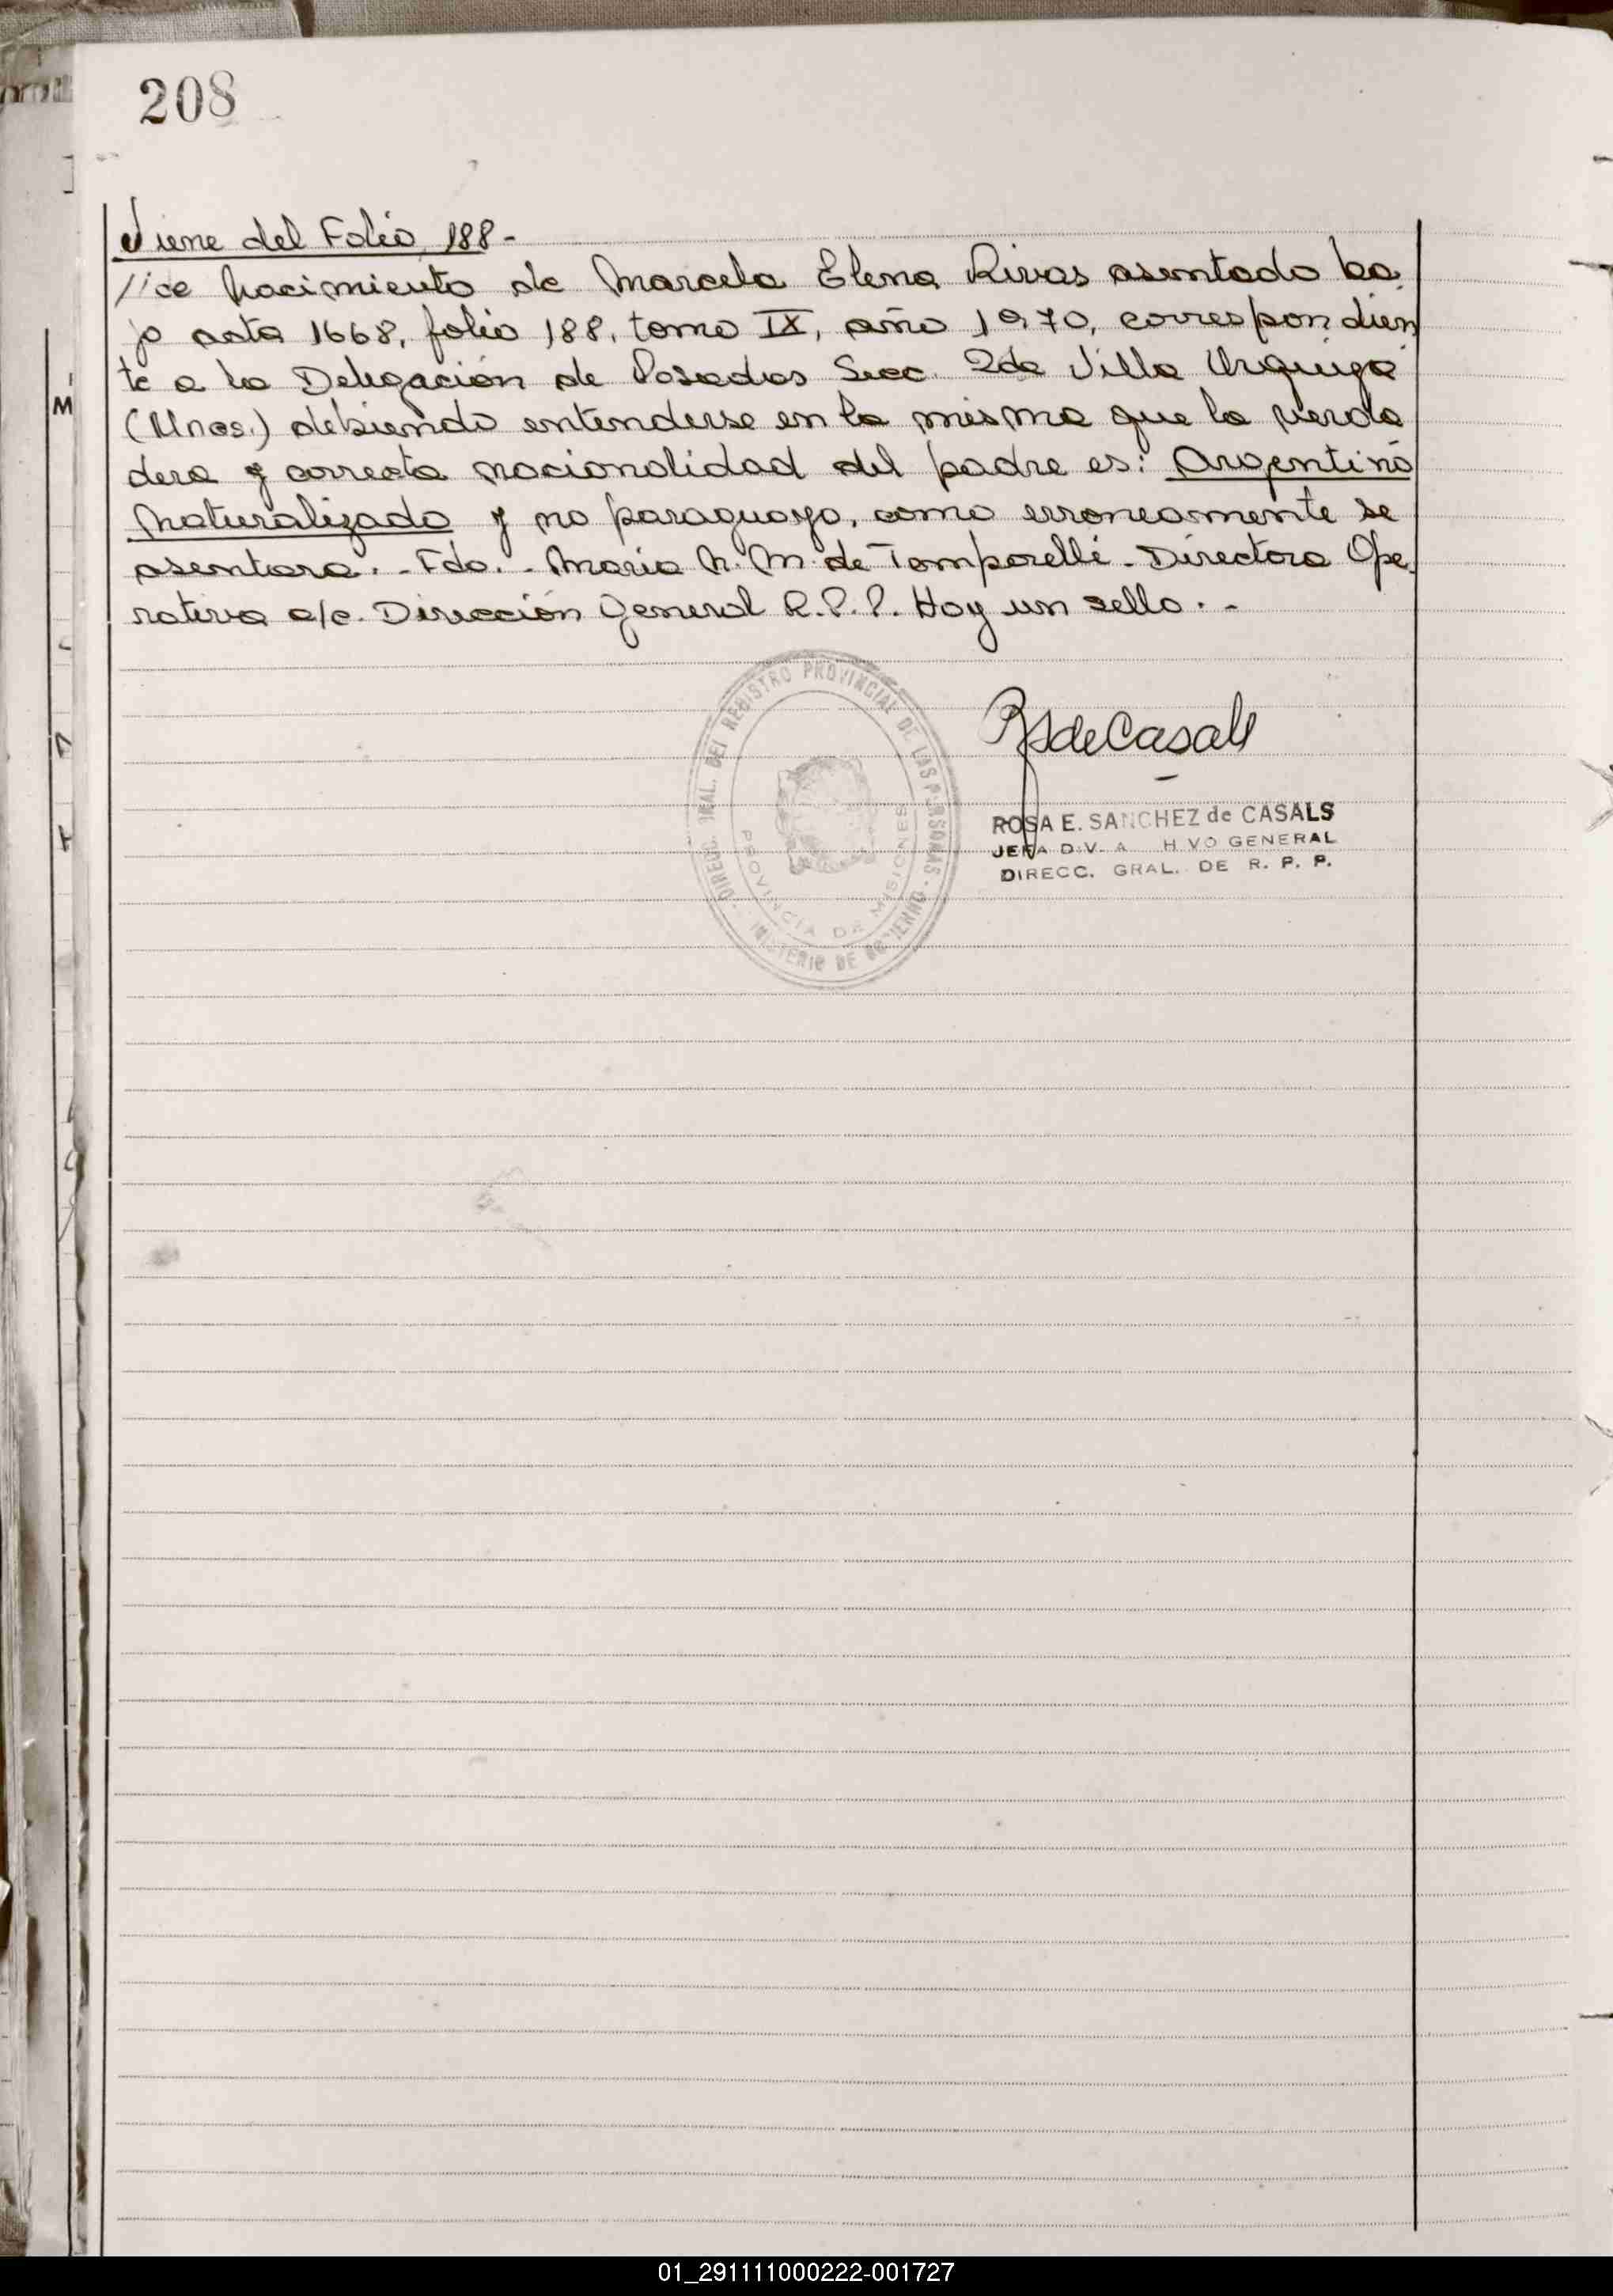 208
Viene del Folio 188-
//de Nacimiento de Marcela Elena Rivas asentado ba
jo acta 1668, folio 188, tomo IX, año 1970, correspondien
te a la Delegación de Posadas Secc. 2da Villa Urquiza
(Mnes.) debiendo entenderse en la misma que la verda
dera y correcta nacionalidad del padre es: Argentino
Naturalizado y no paraguayo, como erroneamente se
asentara.-Fdo.-Maria N. M. de Tomporelli-Directora Ope
rativa a/c. Dirección General R.P.P. Hay un sello.-
DIRECC. GRAL. DEL REGISTRO PROVINCIAL DE LAS PERSONAS
PROVINCIA DE MISIONES
MINISTERIO DE GOBIERNO
RSdeCasals
ROSA E. SANCHEZ de CASALS
JEFA DIV. A HVO GENERAL
DIRECC. GRAL. DE R. P. P.
01_291111000222-001727